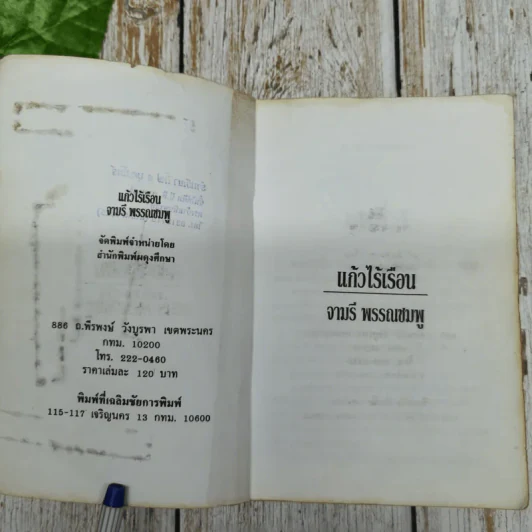 แก้วไร้เรือน
จามรี พรรณชมพู
จัดพิมพ์จำหน่ายโดย
สำนักพิมพ์ผดุงศึกษา
886 ถ.พีรพงษ์ วังบูรพา เขตพระนคร
กทม. 10200
โทร. 222-0460
ราคาเล่มละ 120 บาท
พิมพ์ที่เฉลิมชัยการพิมพ์
115-117 เจริญนคร 13 กทม. 10600
แก้วไร้เรือน
จามรี พรรณชมพู